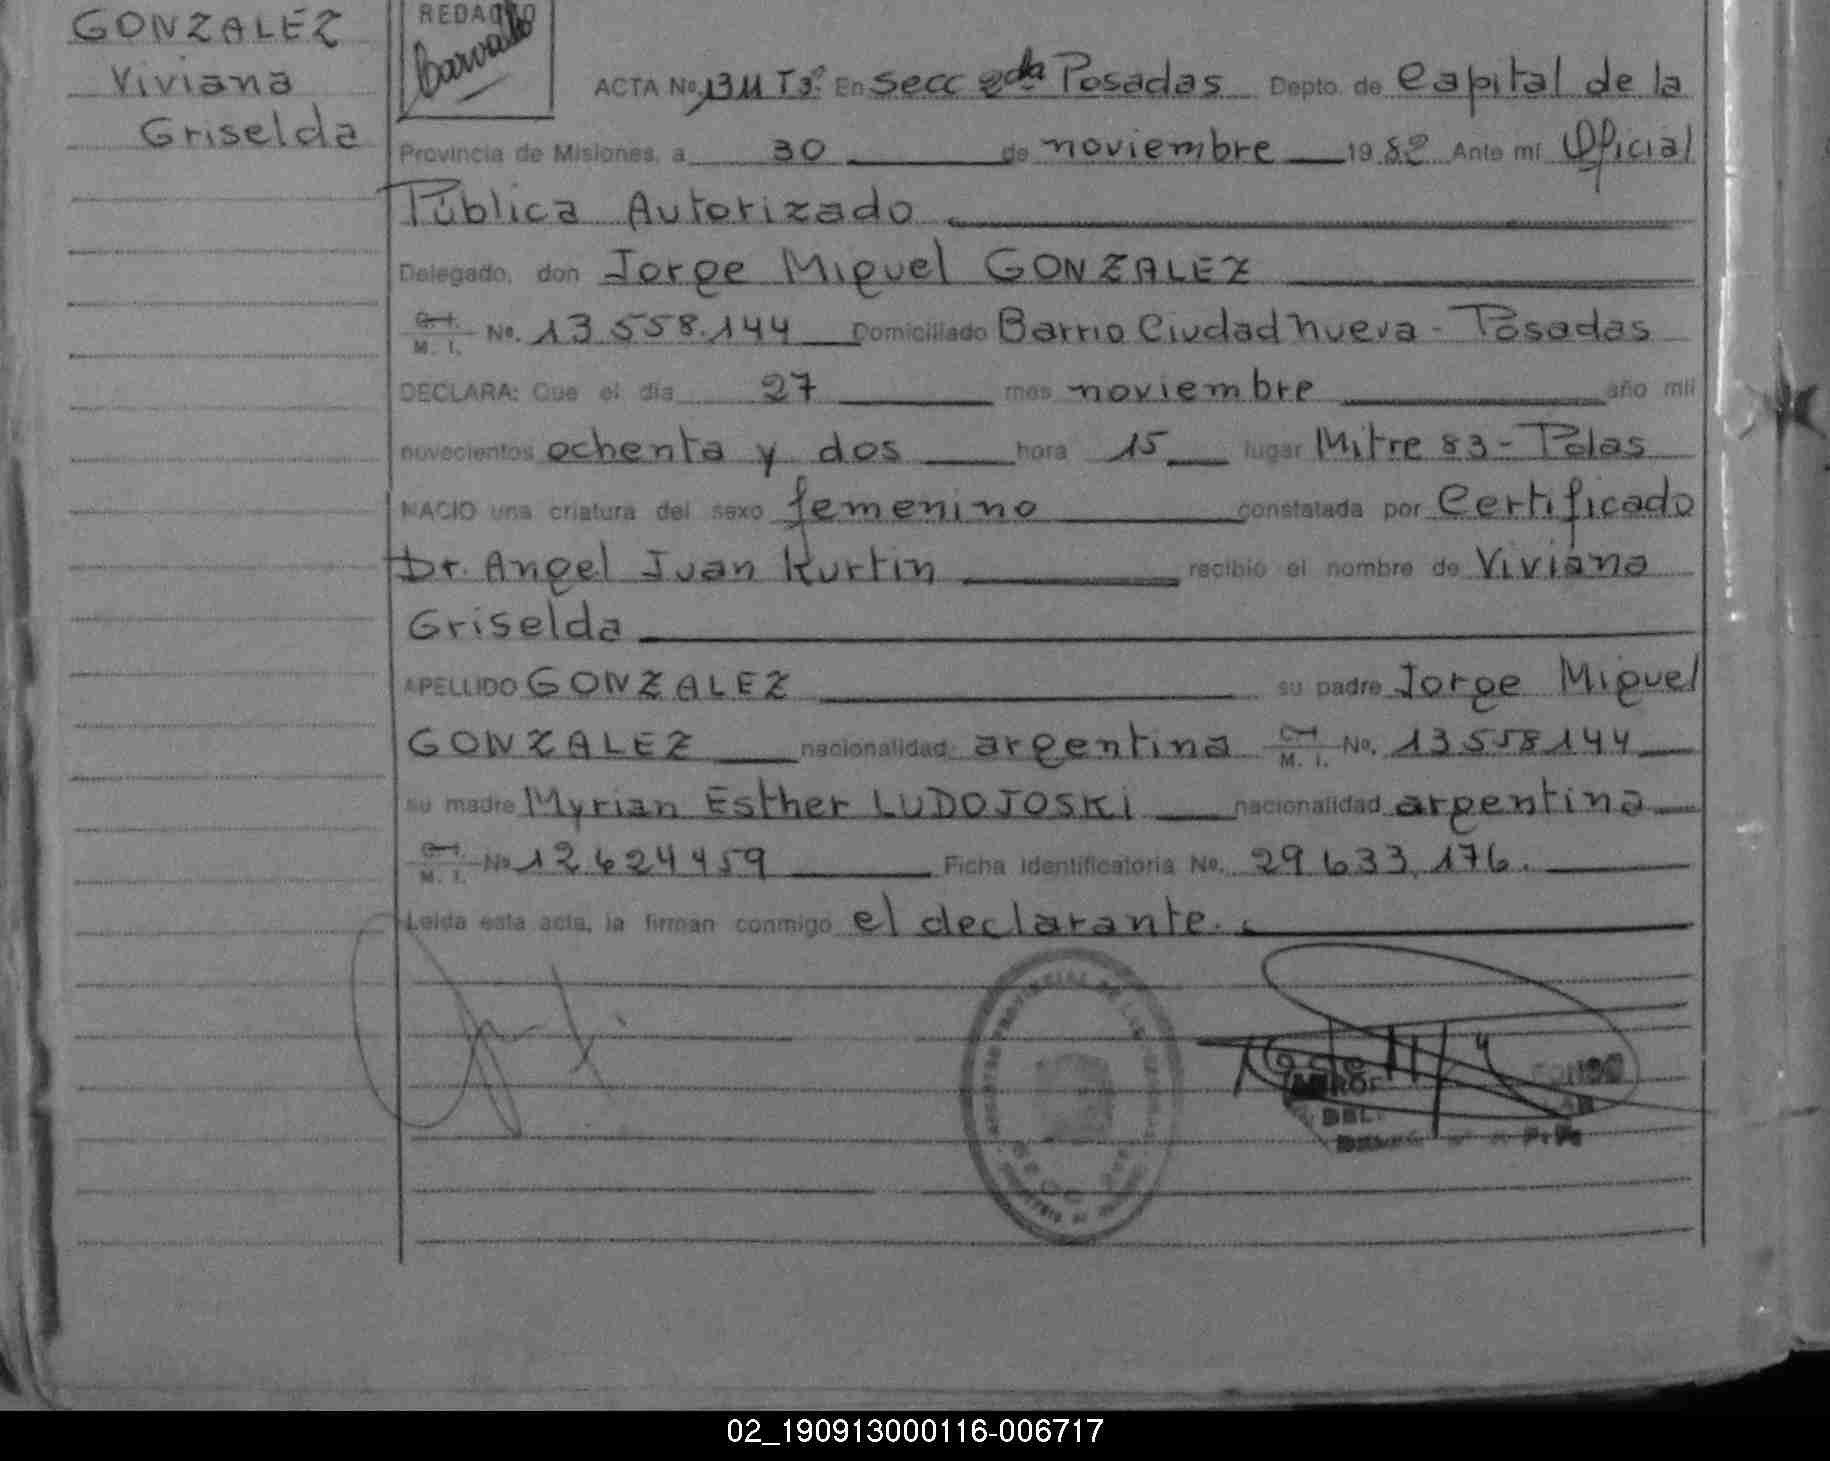 GONZALEZ
Viviana
Griselda
REDACTO
Carvallo
ACTA No. 1311 T3º En Secc 2da Posadas Depto. de Capital de la
Provincia de Misiones, a 30 de noviembre 1982 Ante mí Oficial
Pública Autorizado
Delegado, don Jorge Miguel GONZALEZ
C. I. M. I. No. 13.558.144 Domiciliado Barrio Ciudad nueva - Posadas
DECLARA: Que el día 27 mes noviembre año mil
novecientos ochenta y dos hora 15 lugar Mitre 83 - Pdas
NACIO una criatura del sexo femenino constatada por Certificado
Dr. Angel Juan Kurtin recibió el nombre de Viviana
Griselda
APELLIDO GONZALEZ su padre Jorge Miguel
GONZALEZ nacionalidad argentina C. I. M. I. No. 13558144
su madre Myrian Esther LUDOJOSKI nacionalidad argentina
C. I. M. I. No 12.624459 Ficha Identificatoria No. 29.633.176.
Leída esta acta, la firman conmigo el declarante.
02_190913000116-006717